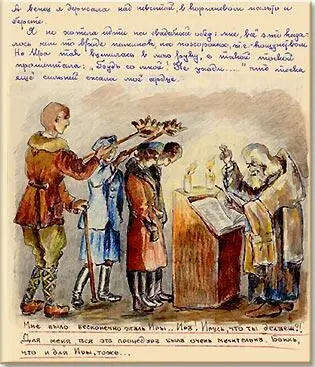 А венец я держала над невестой, в коричневом пальто и
берете.
Я не хотела идти на свадебный обед: мне всё это каза-
лось чем-то вроде поминок, но похоронах, т.е. кощунством.
Но Ира так вцепилась в мою руку, с такой тоской
прошептала: „Будь со мной! Не уходи...." что тоска
ещё сильней сжала моё сердце.
Мне было бесконечно жаль Иры.. Ира! Ируся, что ты делаешь?!
Для меня вся эта процедура была очень мучительна. Боюсь,
что и для Иры, тоже...